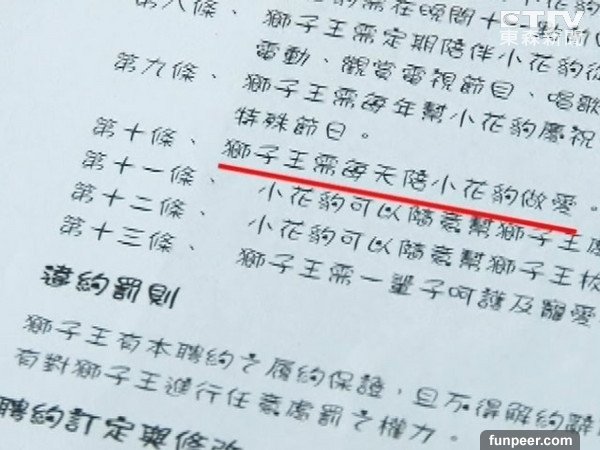 ETtV
東森新聞
第八條、
獅子王需定期陪伴小花豹從
電動、觀賞電視節目、唱歌
第九條、獅子王需每年幫小花豹慶祝
特殊節日。
第十條、獅子王需每天陪小花豹做愛。
第十一條、小花豹可以隨意幫獅子王
第十二條、小花豹可以隨意幫獅子王
第十三條、獅子王需一輩子呵護及寵愛
違約罰則
獅子王有本聘約之履約保證,且不得解約辭
有對獅子王進行任意處罰之權力。
聘約訂定與修改
funpeer.com